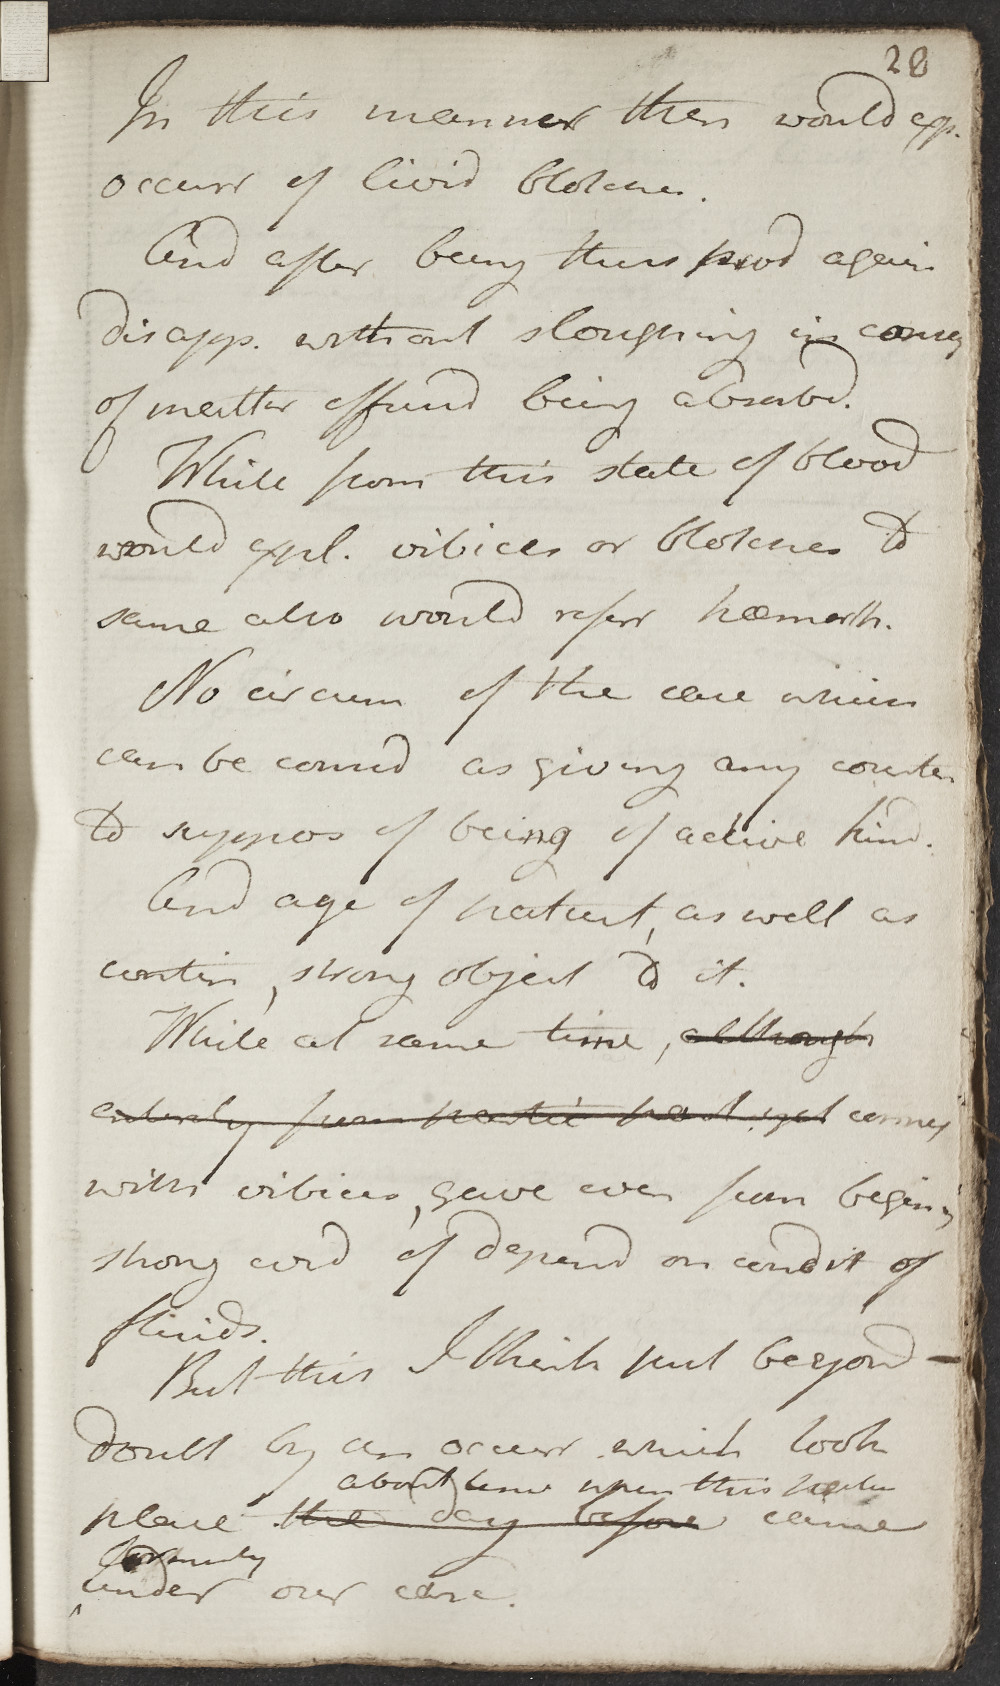 28
In this manner then would exp.
occurr of livid blotches.
And after being thus prod again
disapp. without sloughing in conseq
of matter effused being absorbd.
While from this state of blood
would expl. vibices or blotches to
same also would referr hæmorrh.
No circum of the case which
can be consid as giving any counten
to suppos of being of active kind.
And age of patient, as well as
contin, strong object to it.
While at same time, although
entirely from hectic yet connex
with vibices, gave even from beginng
strong cord of depend on condit of
fluids.
But this I think put beyond
doubt by an occurr which took
about time when this patien
place the day before came
formerly
under our care.